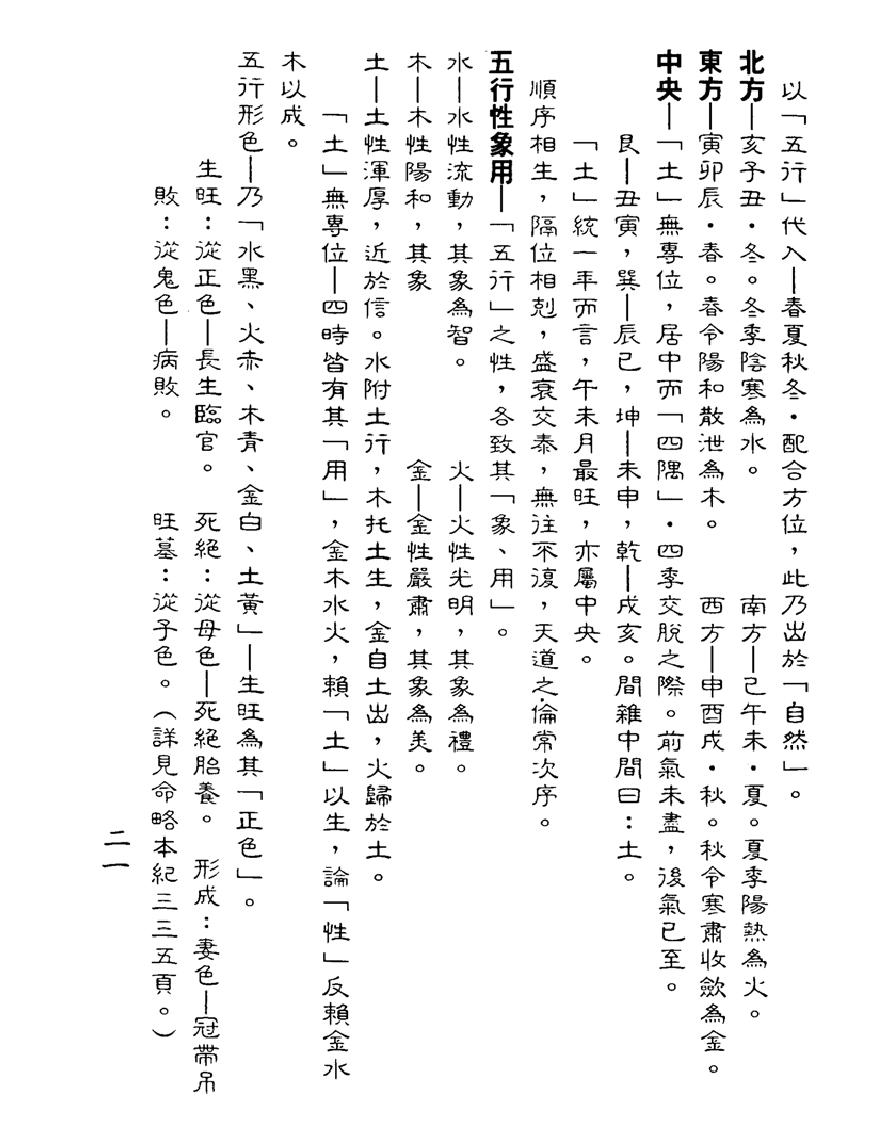 以「五行」代入—春夏秋冬．配合方位，此乃出於「自然」。
北方—亥子丑．冬。冬季陰寒為水。　南方—己午未．夏。夏季陽熱為火。
東方—寅卯辰．春。春令陽和散泄為木。　西方—申酉戌．秋。秋令寒肅收歛為金。
中央—「土」無專位，居中而「四隅」．四季交脫之際。前氣未盡，後氣已至。
艮—丑寅，巽—辰已，坤—未申，乾—戌亥。間雜中間曰：土。
「土」統一年而言，午未月最旺，亦屬中央。
順序相生，隔位相剋，盛衰交泰，無往不復，天道之倫常次序。
五行性象用—「五行」之性，各致其「象、用」。
水—水性流動，其象為智。　火—火性光明，其象為禮。
木—木性陽和，其象　金—金性嚴肅，其象為美。
土—土性渾厚，近於信。水附土行，木托土生，金自土出，火歸於土。
「土」無專位—四時皆有其「用」，金木水火，賴「土」以生，論「性」反賴金水
木以成。
五行形色—乃「水黑、火赤、木青、金白、土黃」—生旺為其「正色」。
生旺：從正色—長生臨官。　死絕：從母色—死絕胎養。　形成：妻色—冠帶帛
敗：從鬼色—病敗。　旺墓：從子色。（詳見命略本紀三三五頁。）
二一